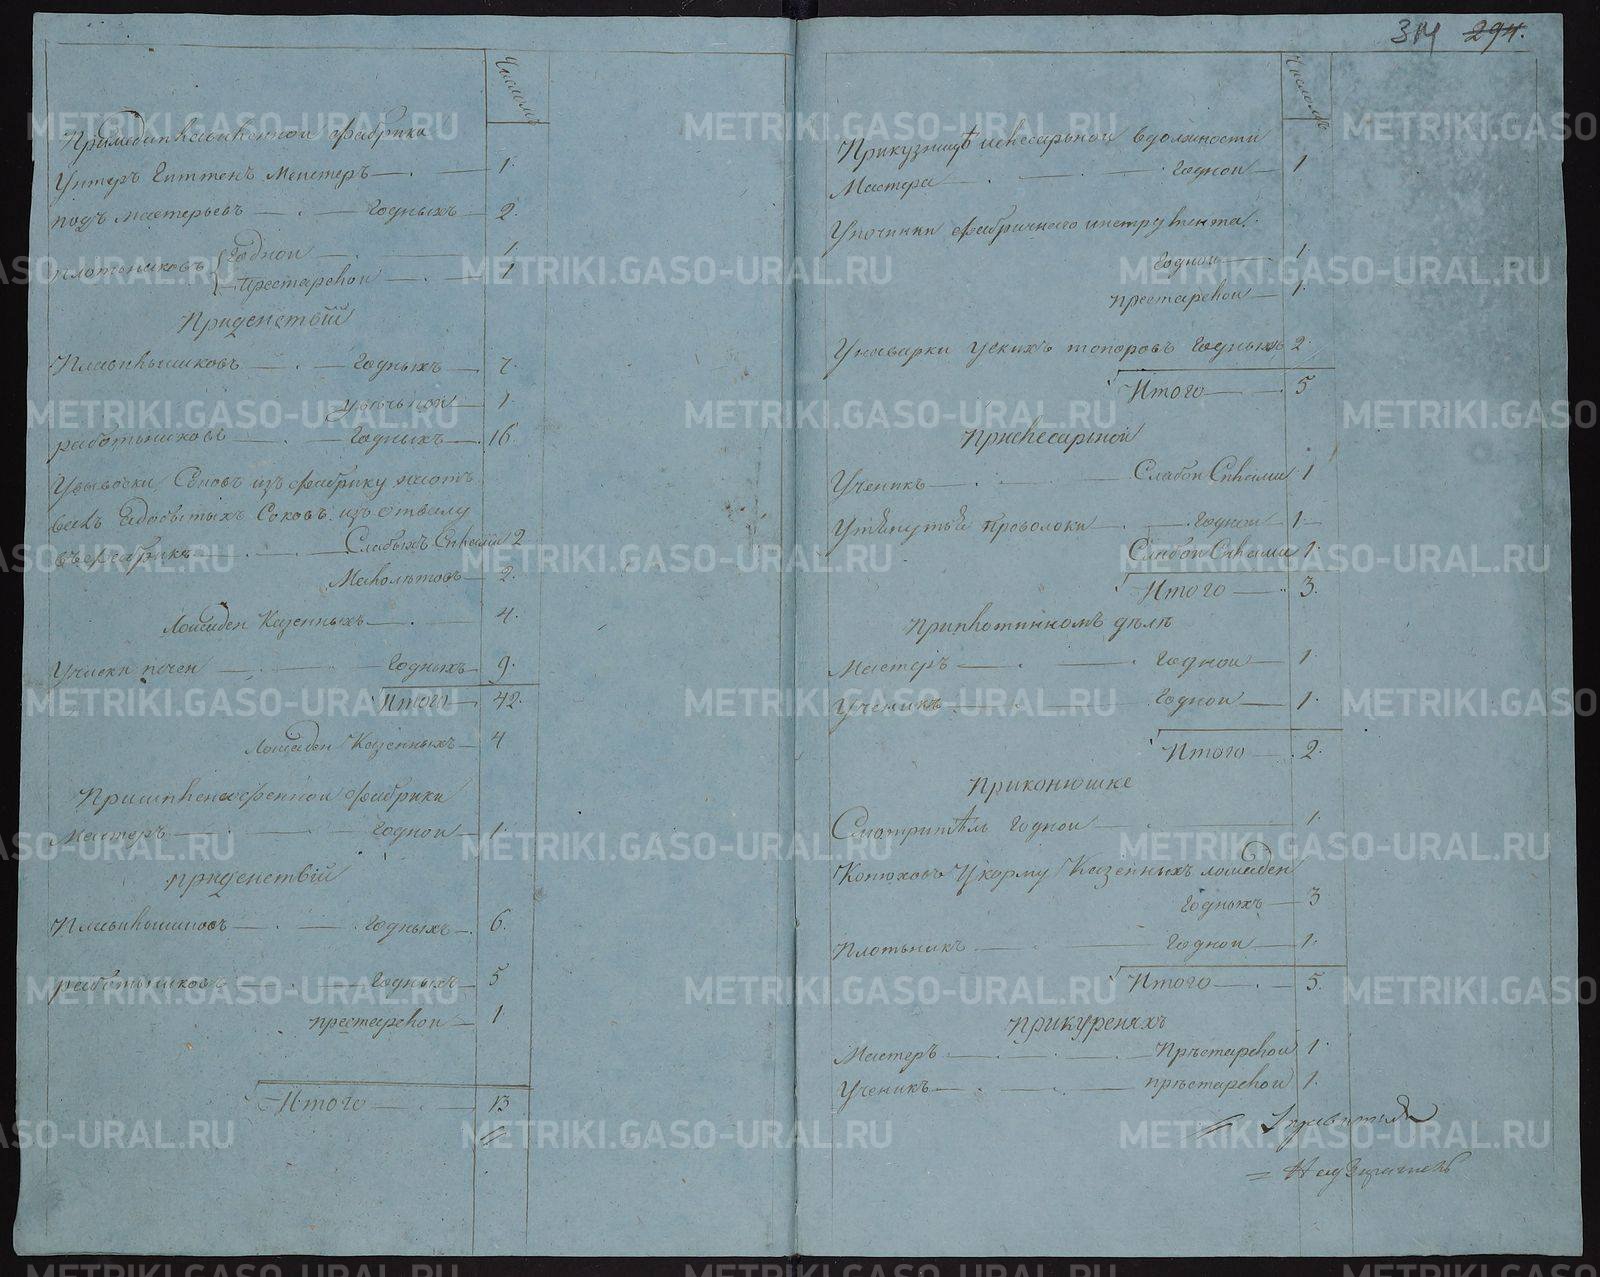 Числомъ
Примедиплавиленной фабрики
Унтеръ Гиттенъ Меистеръ 1.
подъ мастерьевъ Годныхъ 2.
плотьниковъ Годнои 1.
Престарелои 1
Придеиствїи
Плавильшиковъ Годныхъ 7.
увѣчнои 1.
работьниковъ Годныхъ 16
Увывоски Соковъ изъ фабрику
Соковъ изъ отвалу
въ фабрику Слабыхъ Силами 2
Малолѣтовъ 2.
Лошадеи Казенныхъ 4.
Учиски печеи Годныхъ 9.
Итого 42.
Лошадеи Казенныхъ 4
фабрики
Мастеръ Годнои 1.
придеиствїи
Плавильшиковъ Годныхъ 6.
работьниковъ Годныхъ 5
престарелои 1
Итого 13
314 294.
Числомъ
Прикузницѣислесарьнои вдолжности
Мастера Годнои 1
Упочинки фабричнаго инструмента.
Годнои 1.
престарелои 1.
Унаварки ускихъ топоровъ Годныхъ 2.
Итого 5
Прислесарьнои
Ученикъ Слабои Силами 1
проволоки Годнои 1.
Слабои Силами 1.
Итого 3.
Приплотинномъ дѣлѣ
Мастеръ Годнои 1.
Ученикъ Годнои 1.
Итого 2.
Приконюшне
Смотритѣль Годнои 1.
Конюховъ Укорму Казенныхъ лошадеи
Годныхъ 3
Плотьникъ Годнои 1.
Итого 5.
Прикуреняхъ
Мастеръ Прѣстарелои 1.
Ученикъ прѣстарелои 1.
Надзиратель
METRIKI.GASO-URAL.RU